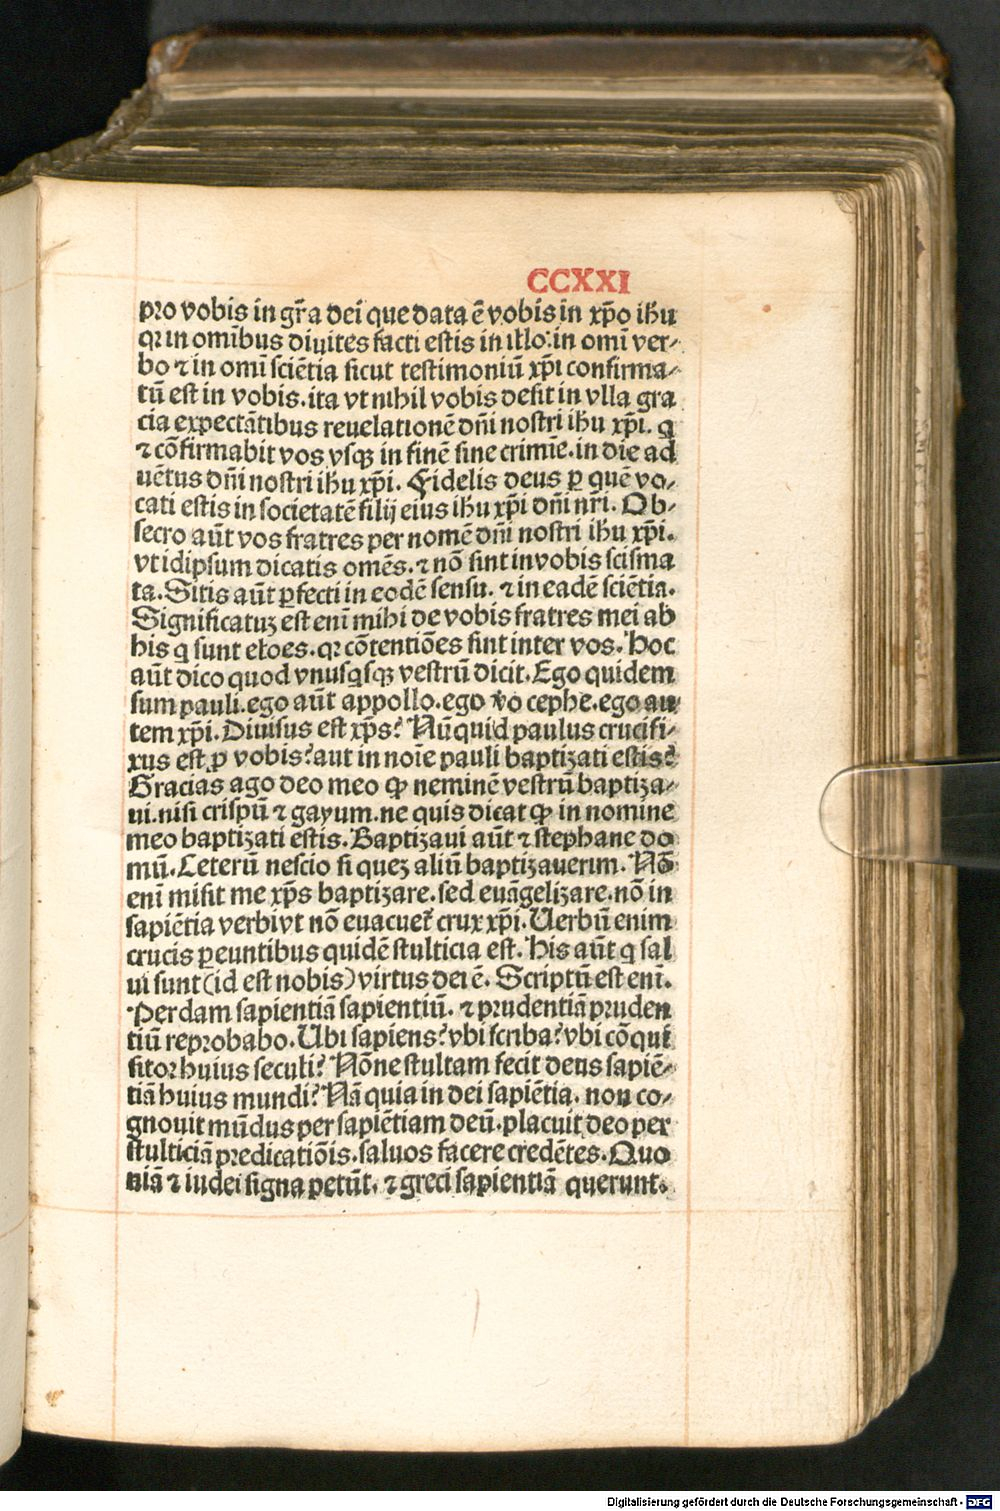 CCXXI
pro vobis in gr̃a dei que data ē vobis in xp̄o ih̄u
qꝛ in om̄ibus diuites facti estis in illo: in om̄i ver⸗
bo ⁊ in om̄i sciētia sicut testimoniū xp̄i confirma⸗
tū est in vobis. ita vt nihil vobis desit in vlla gra
cia expectātibus reuelationē dn̄i nostri ih̄u xp̄i. q̇
⁊ cōfirmabit vos vsqꝫ in finē sine crimīe. in die ad
uētus dn̄i nostri ih̄u xp̄i. Fidelis deus ꝑ quē vo⸗
cati estis in societatē filij eius ih̄u xp̄i dn̄i nr̄i. Ob⸗
secro aūt vos fratres per nomē dn̄i nostri ih̄u xp̄i.
vt idipsum dicatis omēs. ⁊ nō sint in vobis scisma
ta. Sitis aūt ꝑfecti in eodē sensu. ⁊ in eadē sciētia.
Significatuꝫ est enī mihi de vobis fratres mei ab
his q̇ sunt cloes. qꝛ cōtentiōes sint inter vos. Hoc
aūt dico quod vnusq̇sqꝫ vestrū dicit. Ego quidem
sum pauli. ego aūt appollo. ego v̄o cephe. ego au⸗
tem xp̄i. Diuisus est xp̄s? Nūquid paulus crucifi⸗
xus est ꝓ vobis? aut in noīe pauli baptizati estis?
Gracias ago deo meo ꝙ neminē vestrū baptiza⸗
ui. nisi crispū ⁊ gayum. ne quis dicat ꝙ in nomine
meo baptizati estis. Baptizaui aūt ⁊ stephane do
mū. Ceterū nescio si queꝫ aliū baptizauerim. Nō
enī misit me xp̄s baptizare. sed euāgelizare. nō in
sapiētia verbi vt nō euacuet᷑ crux xp̄i. Uerbū enim
crucis ꝑeuntibus quidē stulticia est. His aūt q̇ sal
ui sunt (id est nobis) virtus dei ē. Scriptū est enī.
Perdam sapientiā sapientiū. ⁊ prudentiā pruden
tiū reprobabo. Ubi sapiens? vbi scriba? vbi cōqui
sitor huius seculi? Nōne stultam fecit deus sapiē⸗
tiā huius mundi? Nā quia in dei sapiētia. non co⸗
gnouit mūdus per sapiētiam deū. placuit deo per
stulticiā predicatiōis. saluos facere credētes. Quo
niā ⁊ iudei signa petūt. ⁊ greci sapientiā querunt.
Digitalisierung gefördert durch die Deutsche Forschungsgemeinschaft - DFG